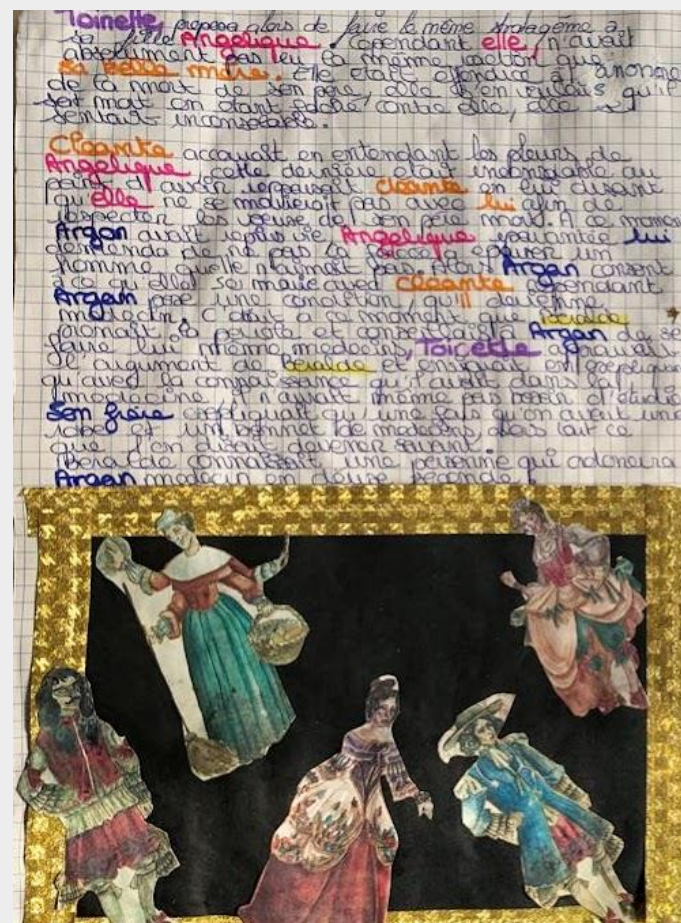 Toinette proposa alors de faire le même stratagème à
sa fille Angelique. Cependant elle, n'avait
absolument pas eu la même que
sa belle mère. Elle était à
de la mort de son père, elle s'en voulais qu'il
soit mort en étant faché contre elle, elle
sentait inconsolable.
Cleante accourait en entendant les pleurs de
Angelique, cette dernière était inconsolable au
point d'avoir repoussait Cleante en lui disant
qu'elle ne se marierait pas avec lui afin de
respecter les de son père mort. A ce momen
Argan avait repris vie, Angelique épouvantée lui
demanda de ne pas la forcer a épouser un
homme quelle n'aimait pas. Alors Argan consent
à ce qu'elle se marie avec Cleante cependant
Argan pose une condition, qu'il devienne
medecin. C'était à ce moment que Beralde
prenait la parole et conseillait à Argan de se
faire lui même medecins, Toinette
l'argument de Beralde et en expliquan
qu'avec la connaissance qu'il avait dans la
medecine il n'avait même pas besoin d'étudie
Son frère expliquait qu'une fois qu'on avait une
robe et un bonnet de medecins alors tout ce
que l'on disait devenait savant.
Béralde connaissait une personne qui
Argan medecin en douze seconde.